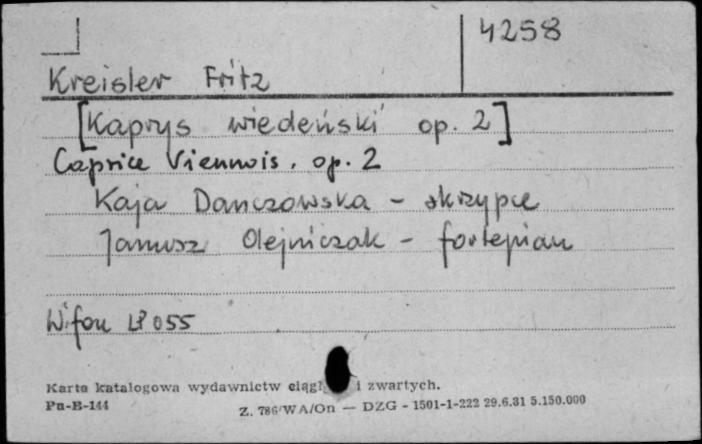 4258
Kreisler Fritz
[Kaprys wiedeński op. 2]
Caprice Viennois. op. 2
Kaja Danczowska - skrzypce
Janusz Olejniczak - fortepian
Wifon LP 055
Karta katalogowa wydawnictw ciągł i zwartych.
Pu-B-144
Z. 786/WA/On — DZG - 1501-1-222 29.6.81 5.150.000